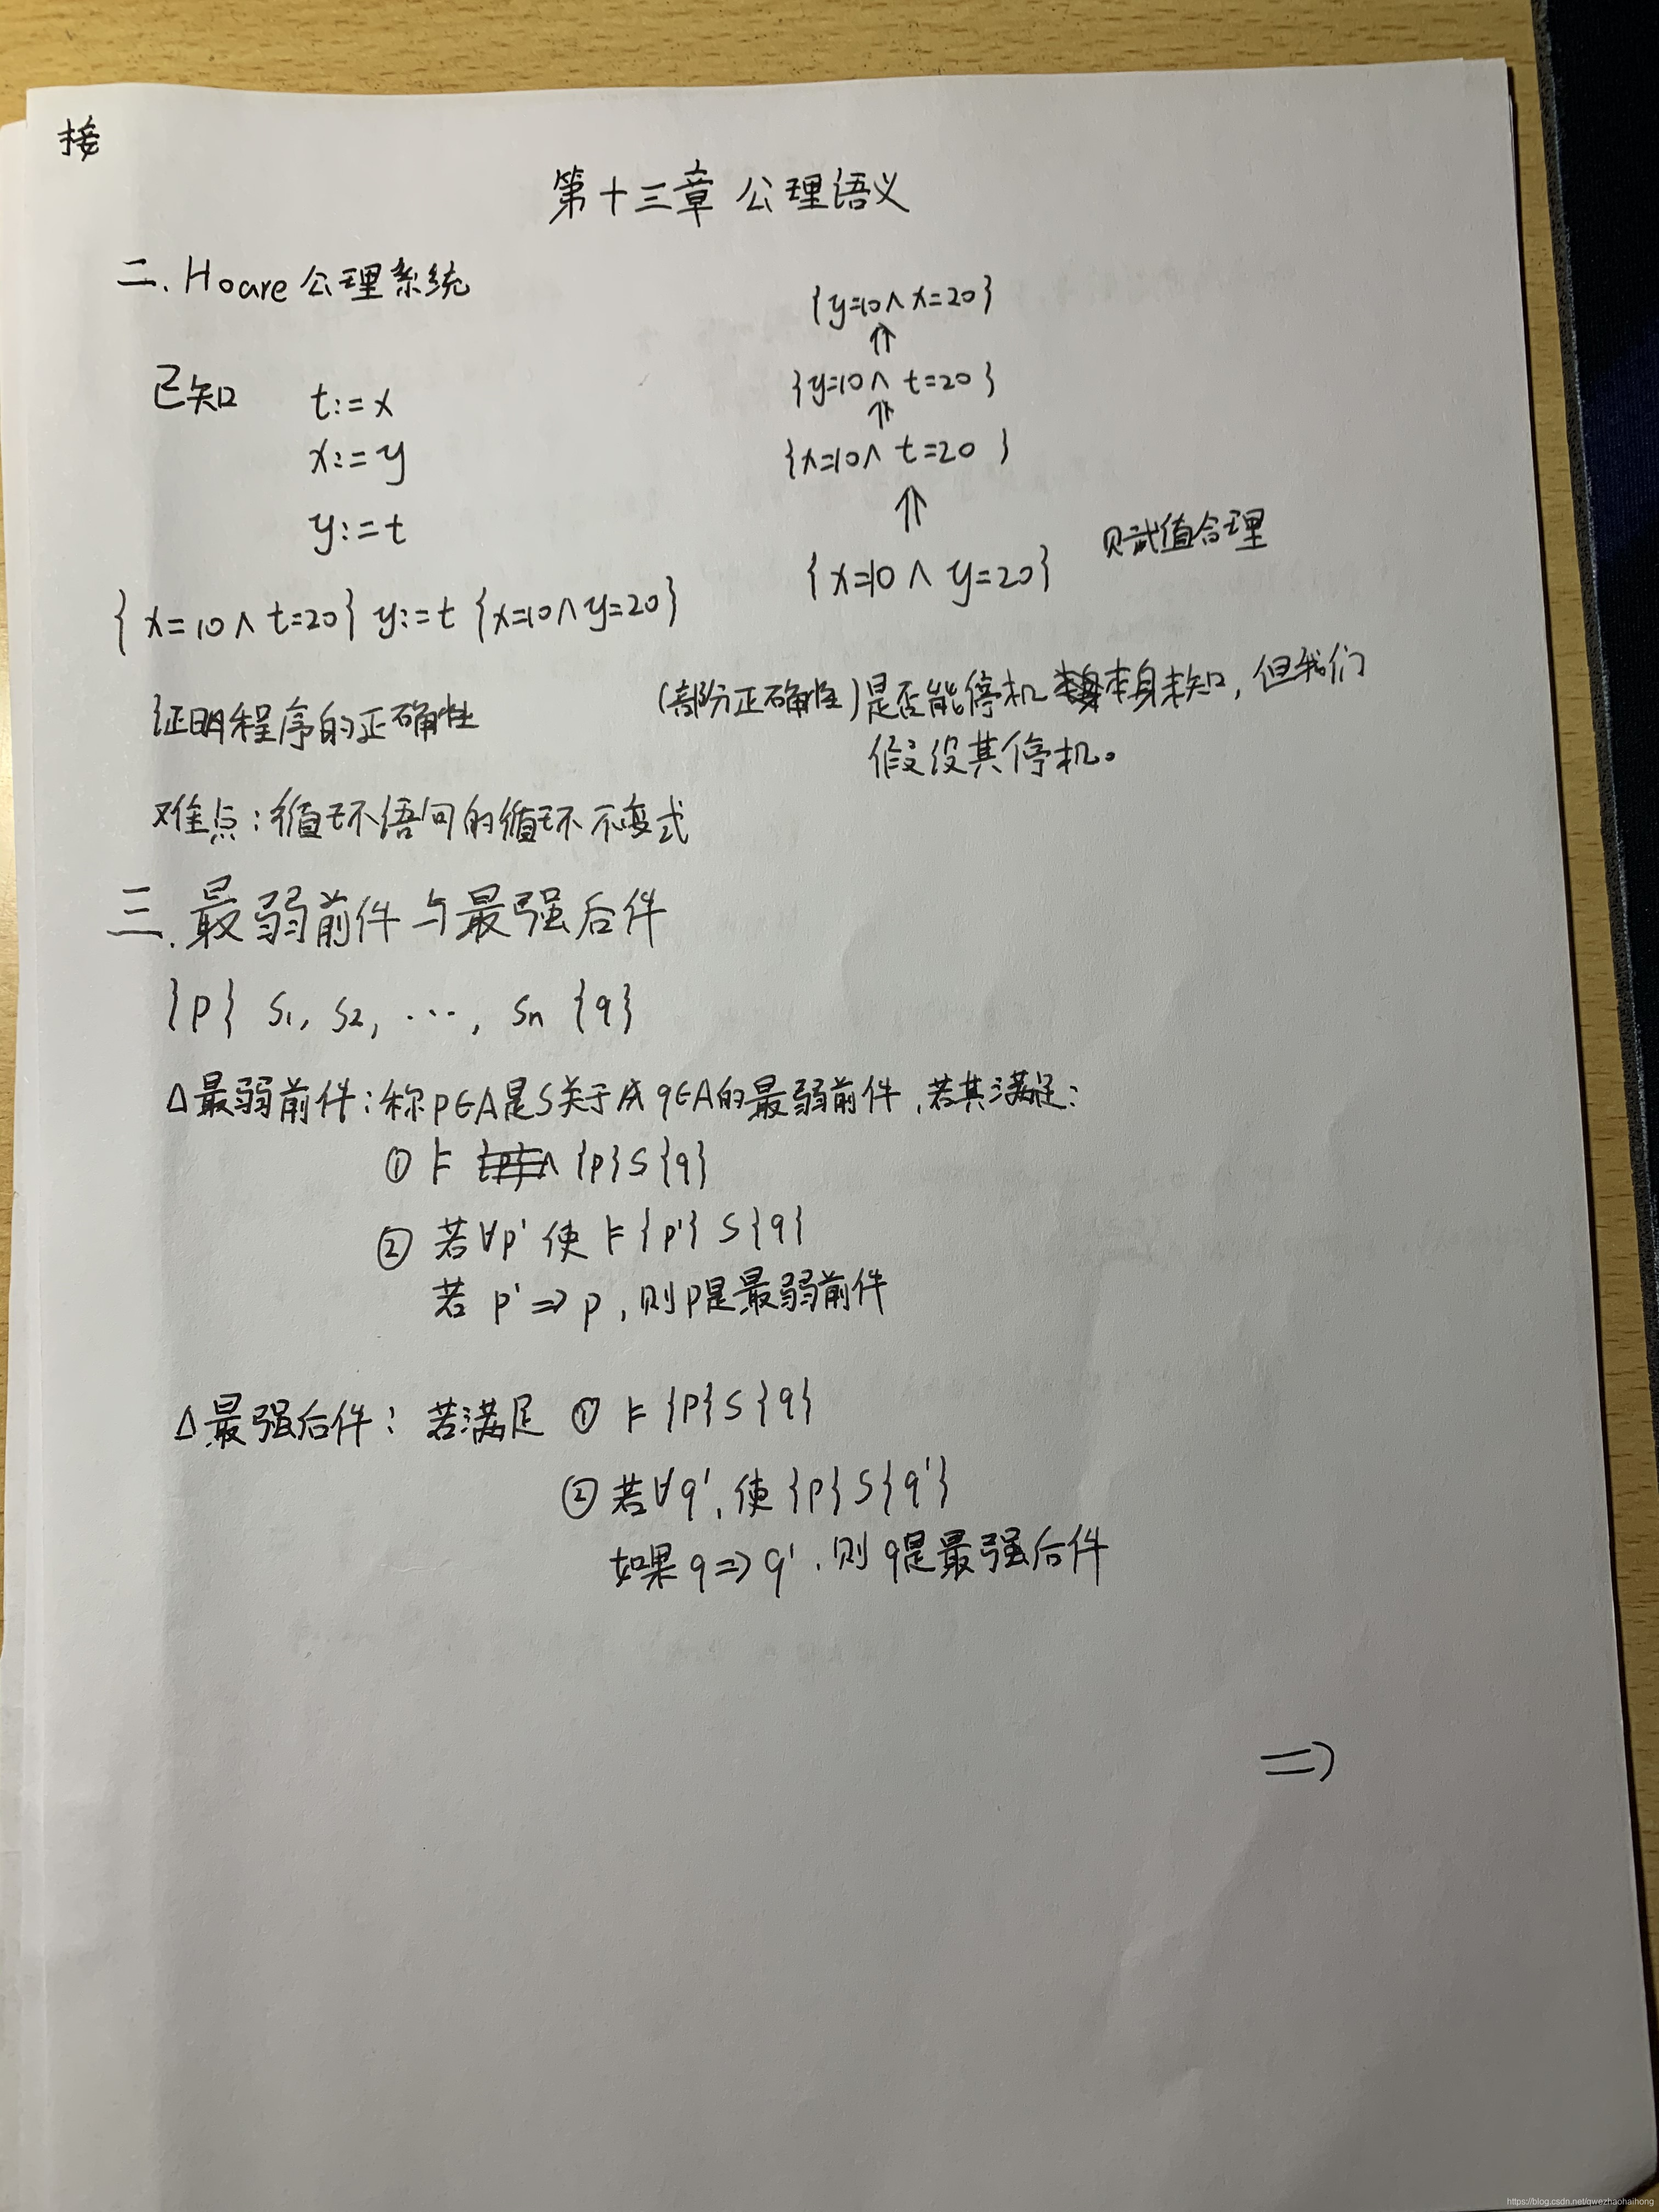 接
第十三章 公理语义
二. Hoare 公理系统
{y=10∧x=20}
⇑
已知 t:=x
{y=10∧ t=20}
⇑
x:=y
{x=10∧ t=20 }
⇑
y:=t
{x=10∧ y=20} 赋值合理
{x=10∧t=20} y:=t {x=10∧y=20}
证明程序的正确性 (部分正确性)是否能停机本身未知, 但我们
假设其停机。
难点:循环语句的循环不变式
三.最弱前件与最强后件
{p} S1, S2, ···, Sn {q}
Δ最弱前件:称p∈A是S关于 q∈A的最弱前件,若其满足:
① ⊧ {p}S{q}
② 若∀p' 使 ⊧{p'} S{q}
若 p'⇒p ,则p是最弱前件
Δ最强后件: 若满足 ① ⊧{p}S{q}
②若∀q',使{p}S{q'}
如果q⇒q',则q是最强后件
⇒
https://blog.csdn.net/qwezhaohaihong